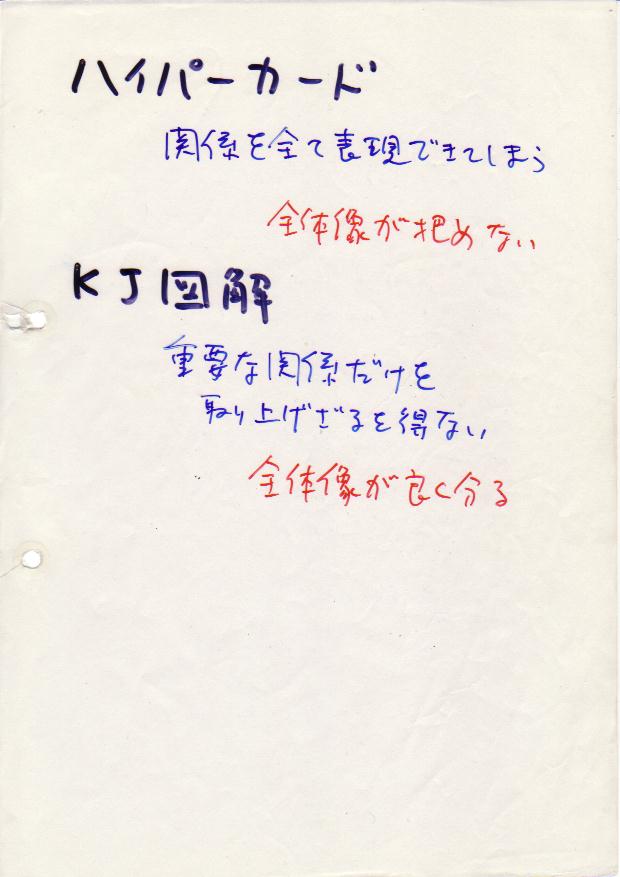 ハイパーカード
関係を全て表現できてしまう
全体像が把めない
KJ図解
重要な関係だけを
取り上げざるを得ない
全体像が良く分る